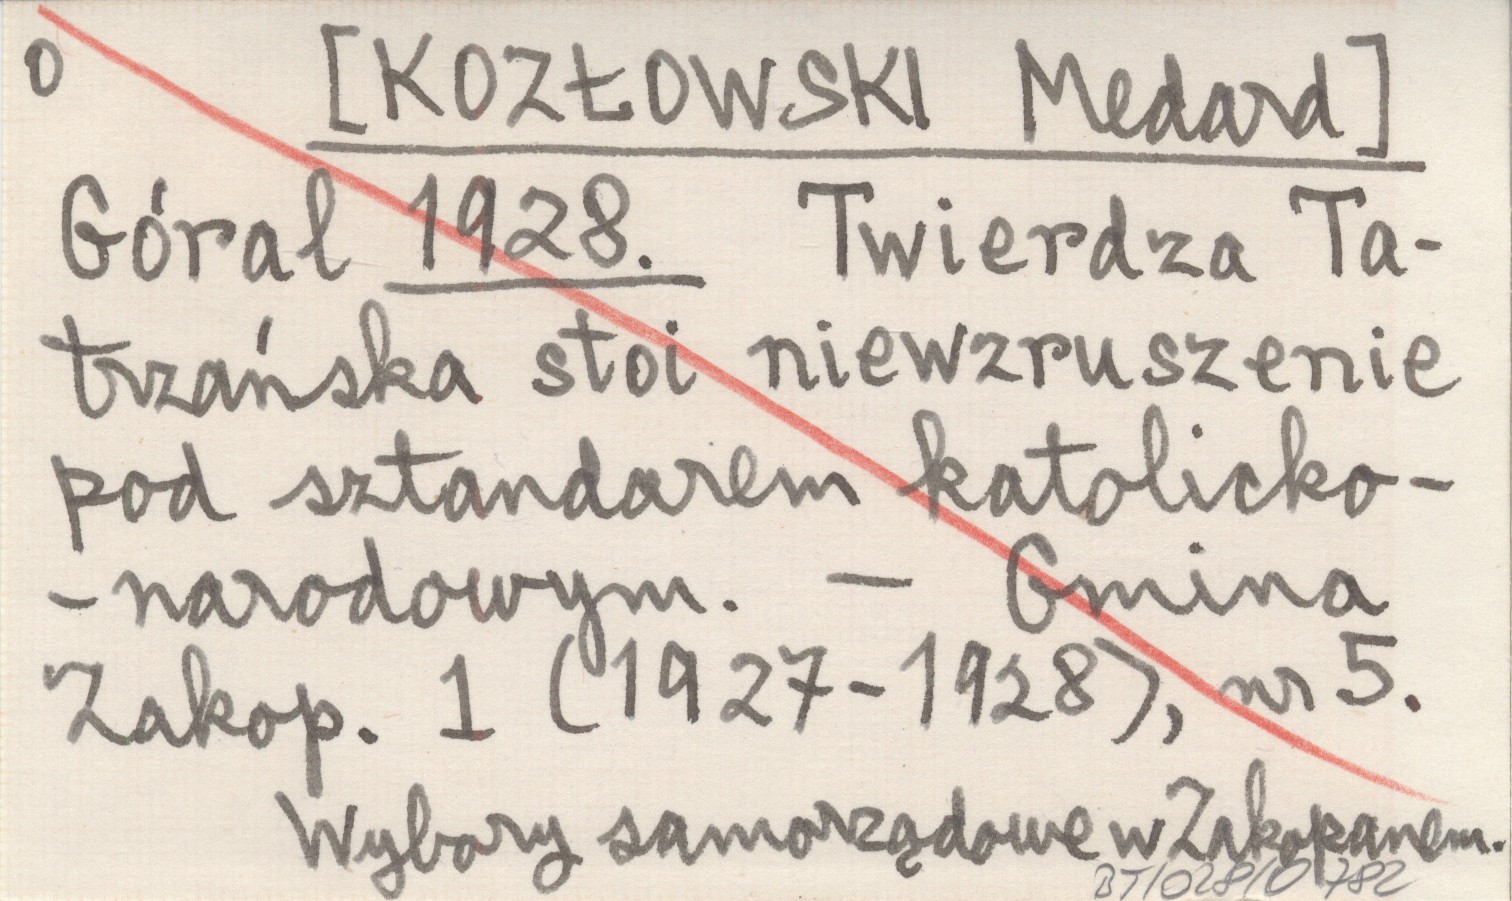 0
[KOZŁOWSKI Medard]
Góral 1928. Twierdza Ta-
trzańska stoi niewzruszenie
pod sztandarem katolicko-
-narodowym. — Gmina
Zakop. 1 (1927-1928), nr 5.
Wybory samorządowe w Zakopanem.
BT/028/0782